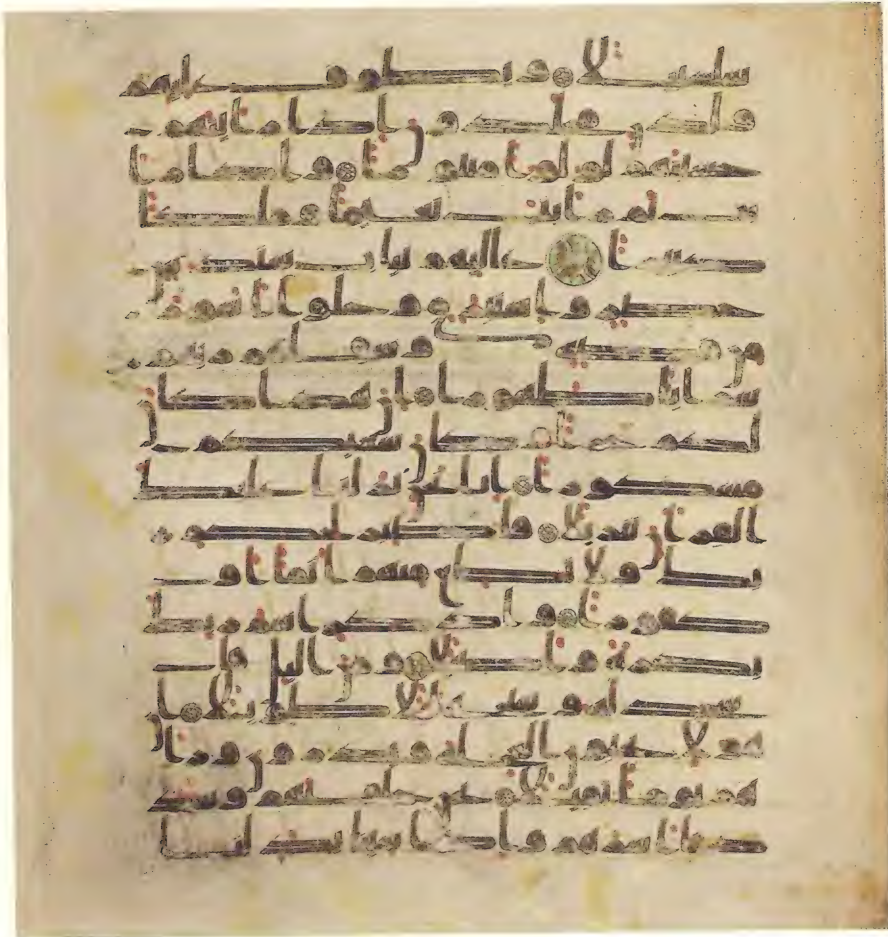 سلسبيلا و يطوف عليهم
ولدن مخلدون اذا رايتهم
حسبتهم لولوا منثورا واذا را
يت ثم رايت نعيما وملكا
كبيرا عاليهم ثياب سندس
خضر واستبرق وحلوا اساور
من فضة وسقيهم ربهم
شرابا طهورا ان هذا كان
لكم جزا وكان سعيكم
مشكورا انا نحن نزلنا عليك
القران تنزيلا فاصبر لحكم
ربك ولا تطع منهم اثما او
كفورا واذكر اسم ربك
بكرة واصيلا ومن اليل فا
سجد له وسبحه ليلا طويلا ان
هولا يحبون العاجلة ويذرون ورا
هم يوما ثقيلا نحن خلقنهم وشد
دنا اسرهم واذا شينا بدلنا